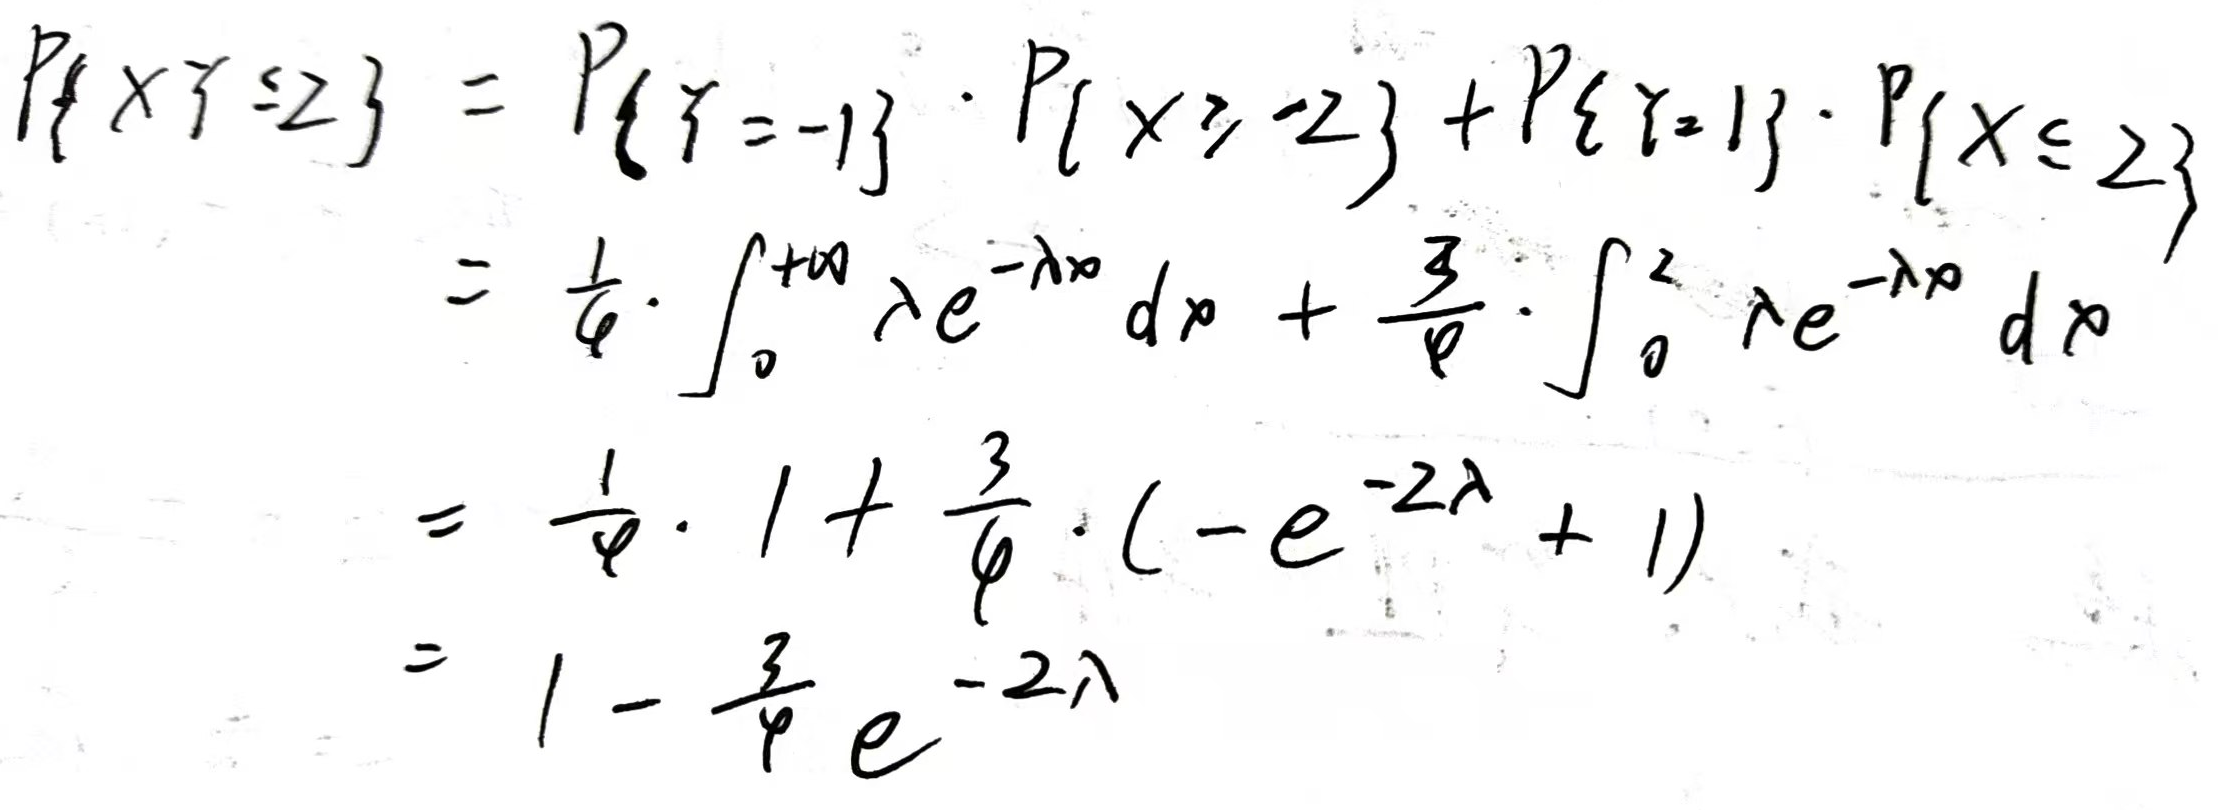 P{XY≤2} = P{Y=-1}·P{X≥-2}+P{Y=1}·P{X≤2}
= 1/4·∫₀^{+∞} λe^{-λx} dx + 3/4·∫₀² λe^{-λx} dx
= 1/4·1+3/4·(-e^{-2λ}+1)
= 1-3/4 e^{-2λ}